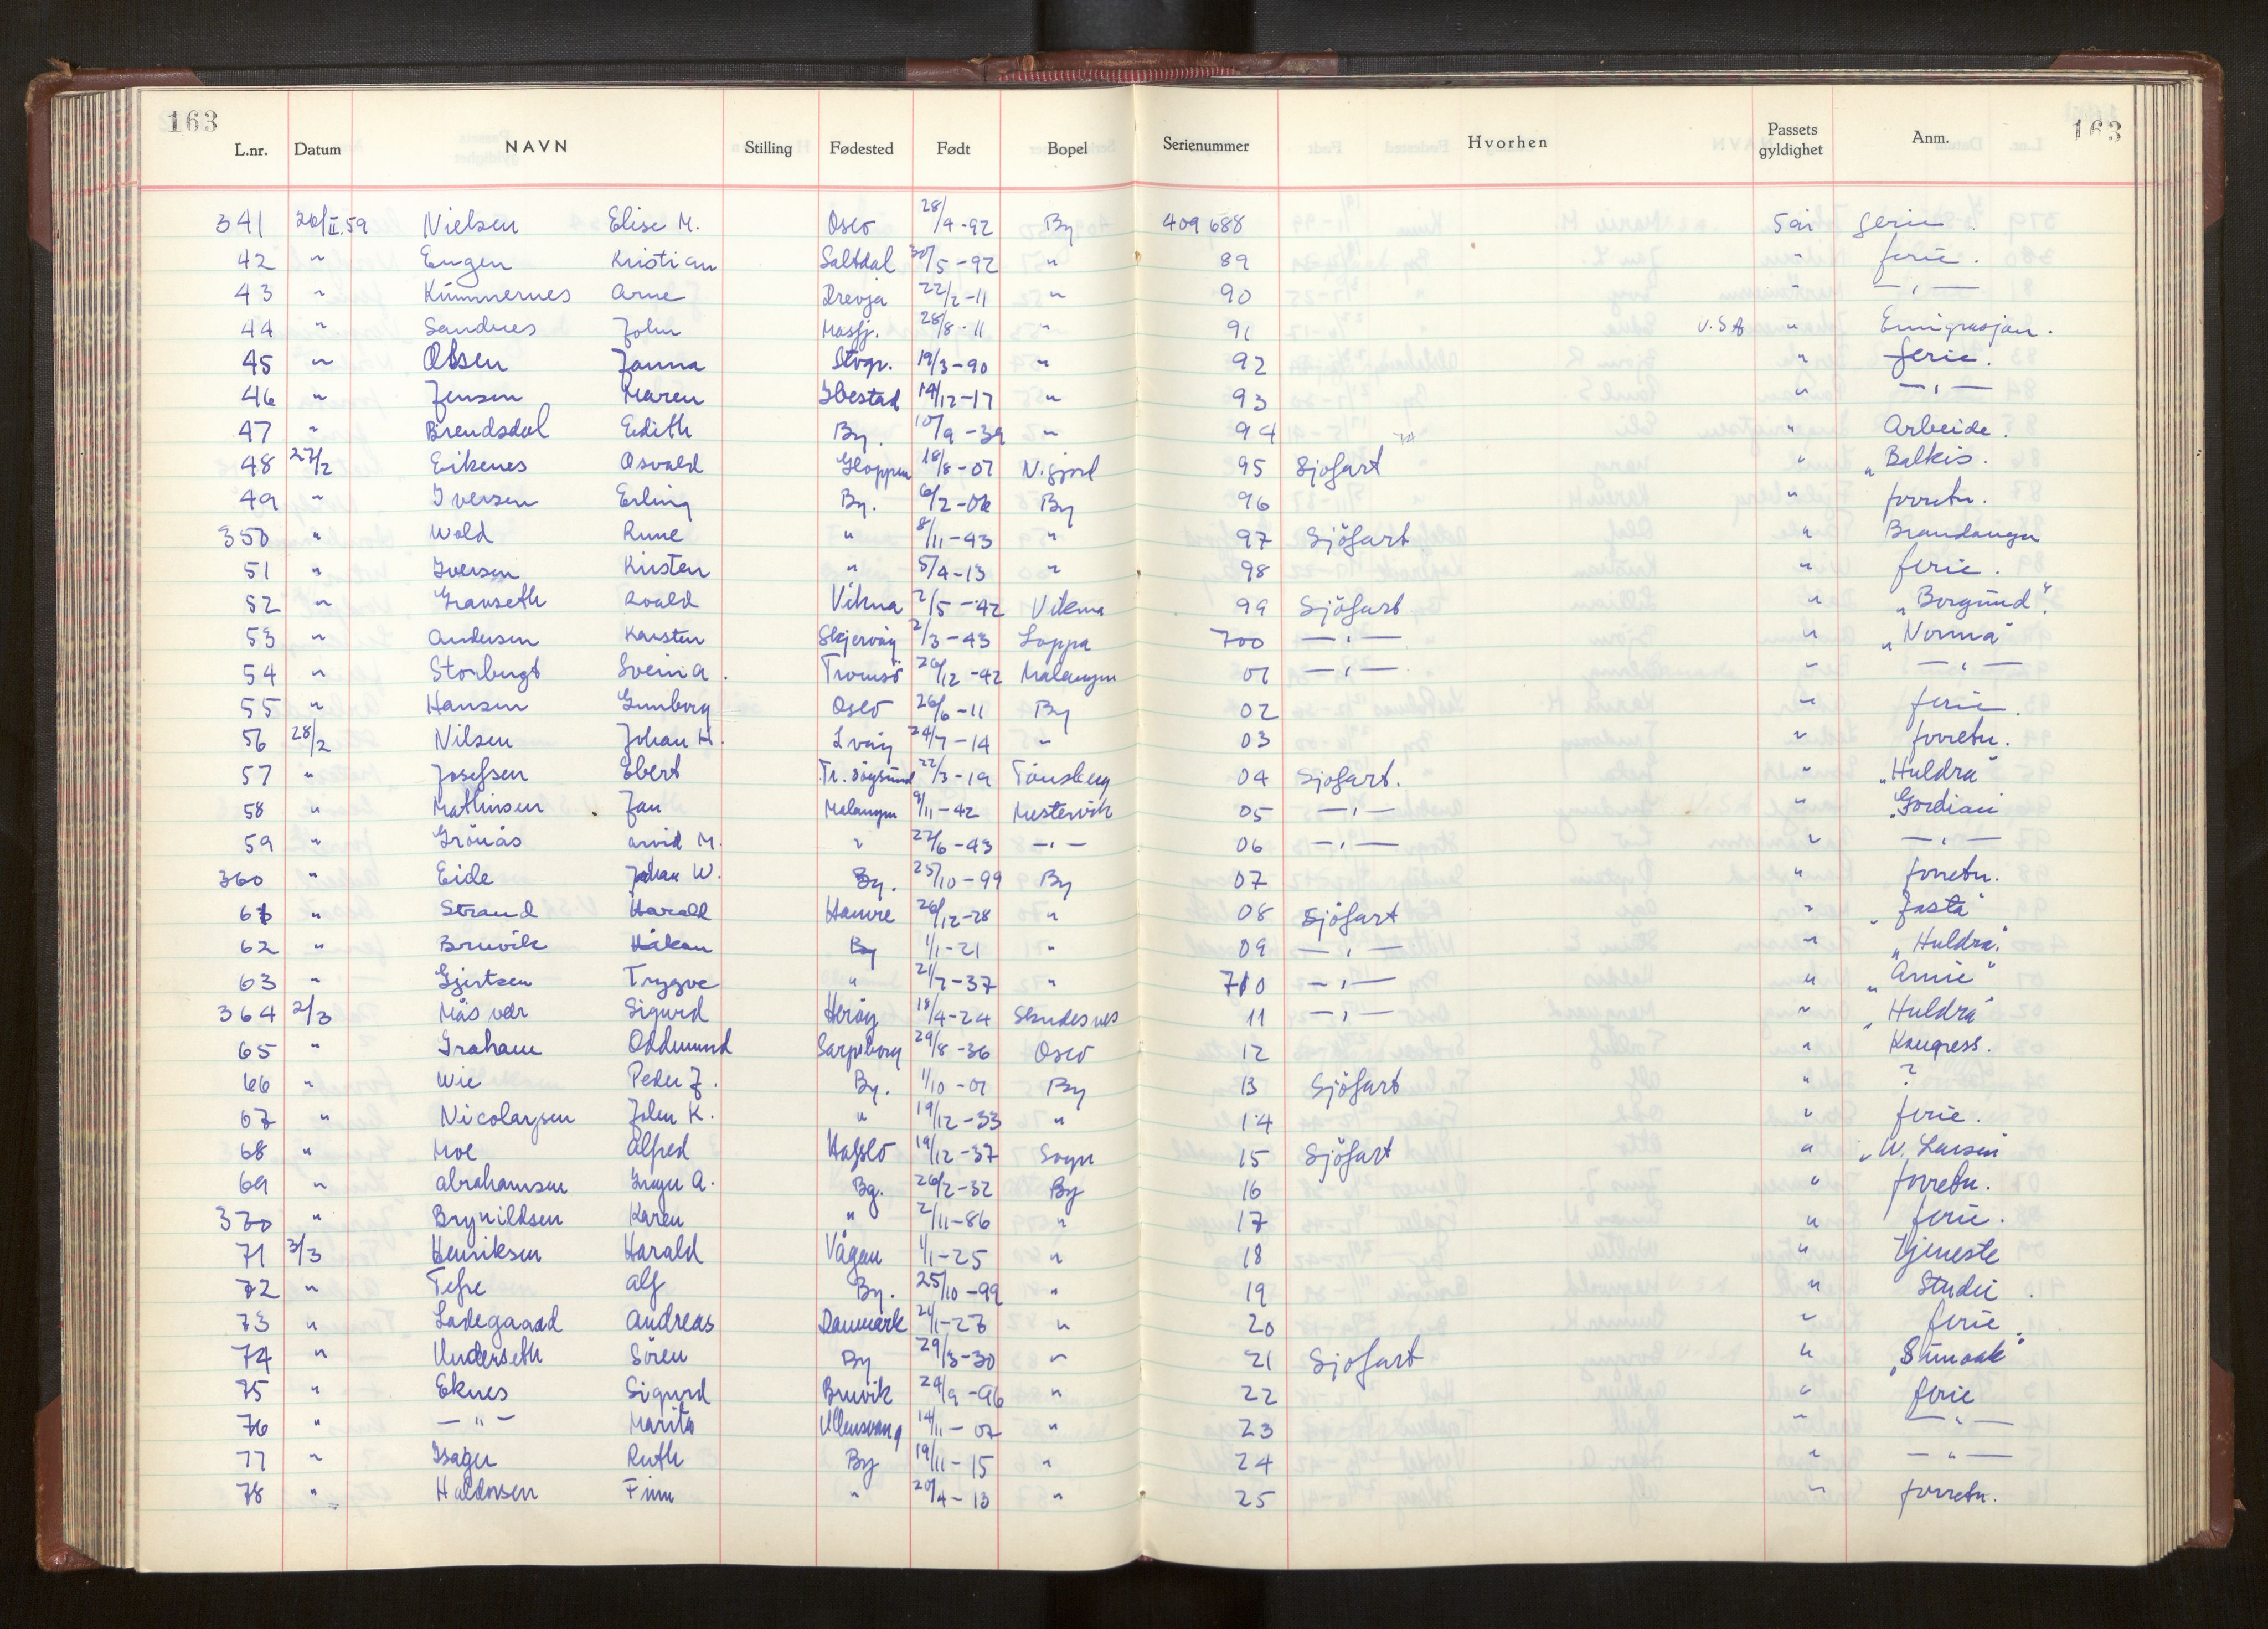 163
163
L.nr. Datum NAVN Stilling Fødested Født Bopel Serienummer Hvorhen Passets gyldighet Anm.
341 26/II.59 Nielsen Elise M. Oslo 28/4-92 By 409688 5 år ferie.
42 " Engen Kristian Saltdal 30/5-92 " 89 " ferie.
43 " Kummernes Arne Drevja 22/2-11 " 90 " —"—
44 " Sandnes John Masfj. 28/8-11 " 91 U.S.A " Emigrasjon.
45 " Olsen Janna Stvgr. 19/3-90 " 92 " ferie.
46 " Jensen Maren Ibestad 14/12-17 " 93 " —"—
47 " Brendsdal Edith By. 10/9-39 " 94 " Arbeide.
48 27/2 Eikenes Osvald Gloppen 18/8-07 N.fjord 95 Sjöfart " "Balkis.
49 " Iversen Erling By. 6/2-06 By 96 " forretn.
350 " Wold Rune " 8/11-43 " 97 Sjöfart " Brandanger
51 " Iversen Kirsten " 5/4-13 " 98 " ferie.
52 " Granseth Roald Vikna 2/5-42 Vikna 99 Sjöfart " "Borgund".
53 " Andersen Karsten Skjervöy 2/3-43 Loppa 700 —"— " "Norma"
54 " Storbugt Svein A. Tromsö 26/12-42 Malangen 01 —"— " —"—
55 " Hansen Gunborg Oslo 26/6-11 By 02 " ferie.
56 28/2 Nilsen Johan H. Lvåg 24/7-14 " 03 " forretn.
57 " Josefsen Ebert Tr. söysund 22/3-19 Tönsberg 04 Sjöfart. " "Huldra"
58 " Mathinsen Jan Malangen 9/11-42 Mestervik 05 —"— " "Gordian"
59 " Grönås Arvid M. " 27/6-43 —"— 06 —"— " —"—
360 " Eide Johan W. By. 25/10-99 By 07 " forretn.
61 " Strand Harald Hamre 26/12-28 " 08 Sjöfart " "Josta"
62 " Bruvik Håkon By 1/1-21 " 09 —"— " "Huldra".
63 " Gjertsen Trygve " 21/7-37 " 710 —"— " "Arnie"
364 2/3 Måsvær Sigurd Heröy 18/4-24 Skudesnes 11 —"— " "Huldra"
65 " Graham Oddmund Sarpsborg 29/8-36 Oslo 12 " Kongress.
66 " Wie Peder J. By. 1/10-01 By 13 Sjöfart " ?
67 " Nicolaysen John K. " 19/12-33 " 14 " ferie.
68 " Moe Alfred Hafslo 19/12-37 Sogn 15 Sjöfart " "W. Larsen"
69 " Abrahamsen Inger A. Bg. 26/2-32 By 16 " forretn.
370 " Brynildsen Karen " 2/11-86 " 17 " ferie.
71 3/3 Henriksen Harald Vågan 1/1-25 " 18 " Tjeneste
72 " Tefre Alf By. 25/10-99 " 19 " Studie.
73 " Ladegaard Andreas Danmark 24/1-27 " 20 " ferie.
74 " Underseth Sören By 29/3-30 " 21 Sjöfart " "Sunoak"
75 " Eknes Sigurd Bruvik 24/9-96 " 22 " ferie
76 " —"— Marita Ullensvang 14/11-07 " 23 " —"—
77 " Isager Ruth By 19/11-15 " 24 " —"—
78 " Haldorsen Finn " 20/4-13 " 25 " forretn.